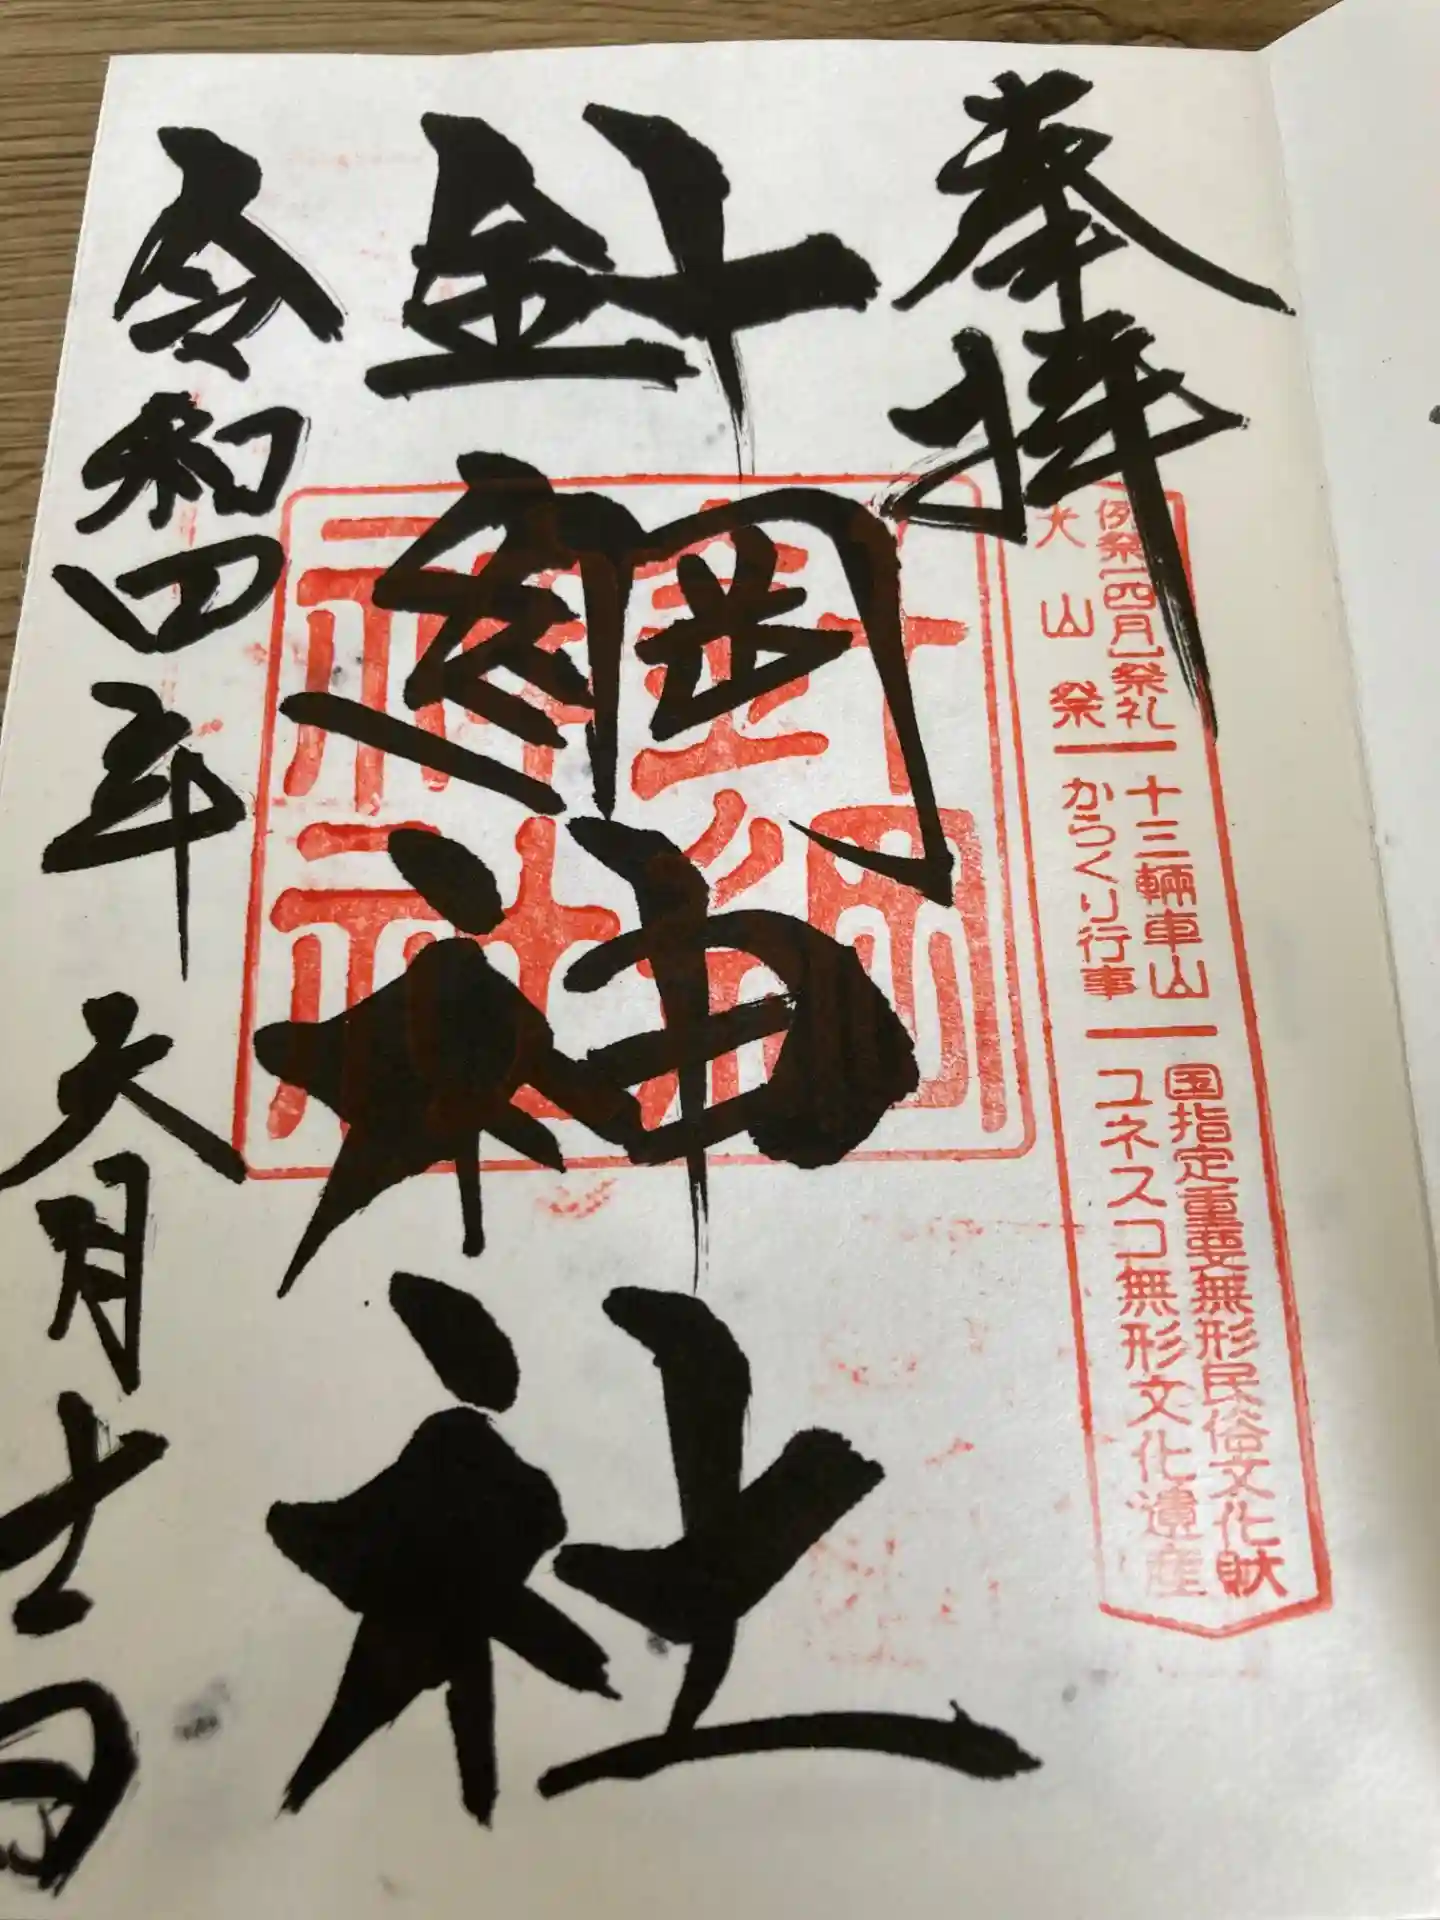 奉拝
例祭[四月]祭礼ー十三輛車山ー国指定重要無形民俗文化財
犬山祭ーからくり行事ーユネスコ無形文化遺産
針綱神社
針綱
神社
令和四年六月十一日